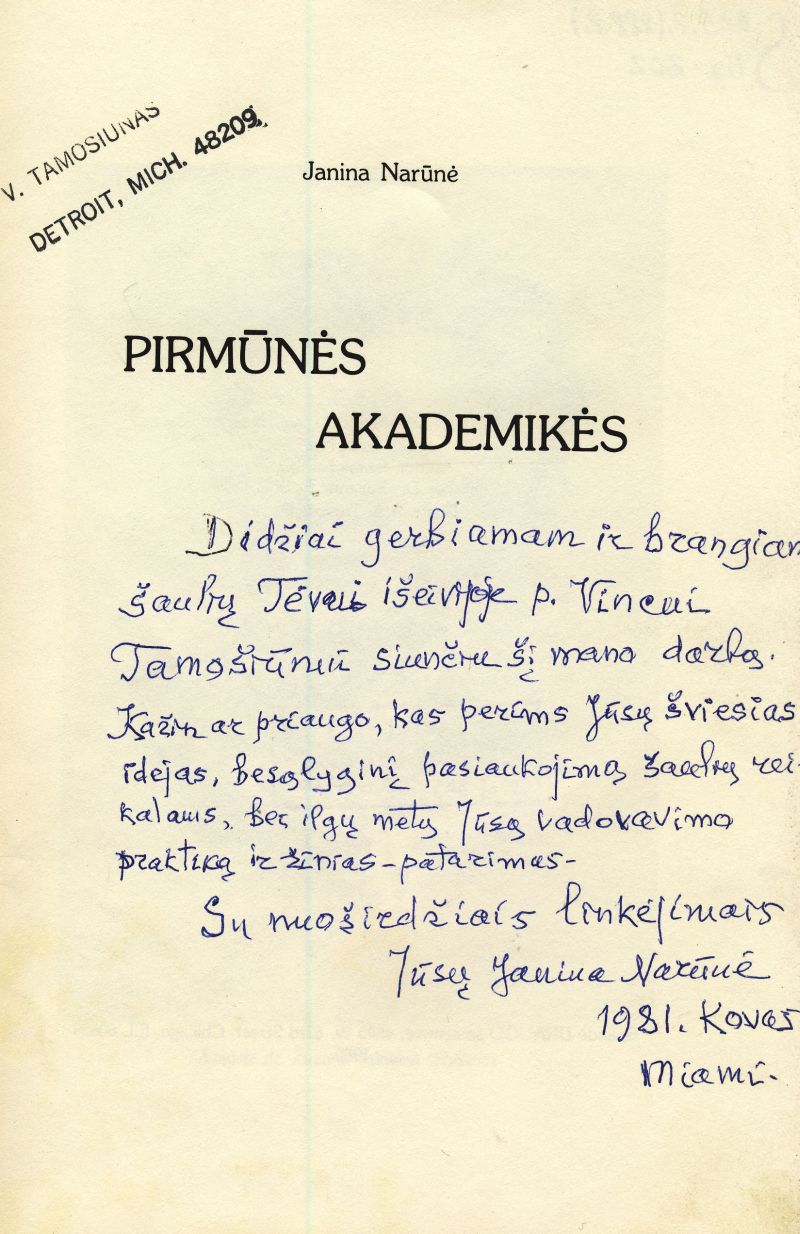 V. TAMOSIUNAS
DETROIT, MICH. 48209
Janina Narūnė
PIRMŪNĖS
AKADEMIKĖS
Didžiai gerbiamam ir brangiam
šaulių Tėvui išeivijoje p. Vincui
Tamošiūnui siunčiu šį mano darbą.
Kažin ar priaugo, kas perims Jūsų šviesias
idejas, besąlyginį pasiaukojimą šaulių rei-
kalams, bei ilgų metų Jūsų vadovavimo
praktiką ir žinias-patarimus-
Su nuoširdžiais linkėjimais
Jūsų Janina Narūnė
1981. Kovas
Miami.